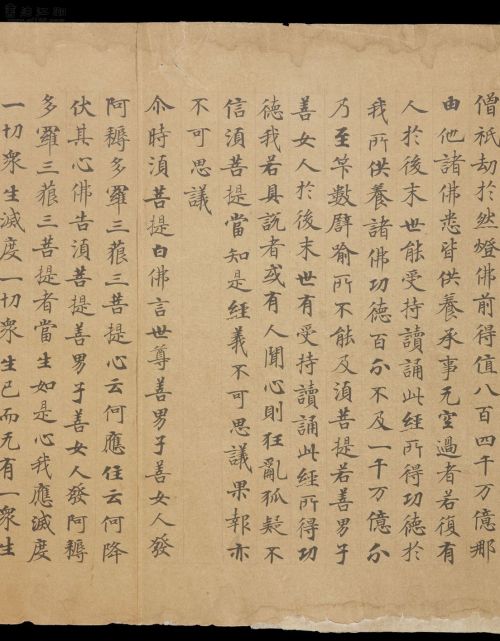 僧祇劫於然燈佛前得值八百四千万億那
由他諸佛悉皆供養承事无空過者若復有
人於後末世能受持讀誦此經所得功德於
我所供養諸佛功德百分不及一千万億分
乃至筭數譬喻所不能及須菩提若善男子
善女人於後末世有受持讀誦此經所得功
德我若具說者或有人聞心則狂亂狐疑不
信須菩提當知是經義不可思議果報亦
不可思議
尒時須菩提白佛言世尊善男子善女人發
阿耨多羅三藐三菩提心云何應住云何降
伏其心佛告須菩提善男子善女人發阿耨
多羅三藐三菩提者當生如是心我應滅度
一切衆生滅度一切衆生已而无有一衆生